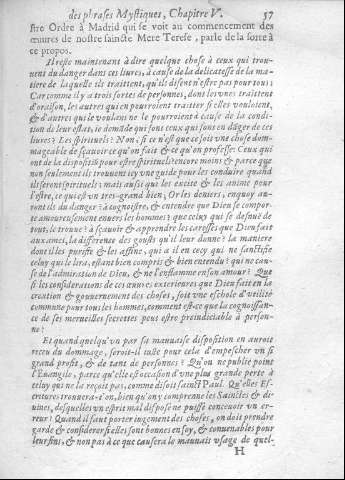 des phrases Mystiques, Chapitre V. 57
stre Ordre à Madrid qui se voit au commencement des
œuures de nostre saincte Mere Terese, parle de la sorte à
ce propos.
Il reste maintenant à dire quelque chose à ceux qui trou-
uent du danger dans ces liures, à cause de la delicatesse de la ma-
tiere de laquelle ils traittent, qu'ils disent n'estre pas pour tous;
Car comme il y a trois sortes de personnes, dont les vnes traittent
d'oraison, les autres qui en pourroient traitter si elles vouloient,
& d'autres qui le voulans ne le pourroient à cause de la condi-
tion de leur estat, ie demāde qui sont ceux qui sont en dāger de ces
liures? Les spirituels? Non; si ce n'est que ce soit vne chose dom-
mageable de sçauoir ce qu'on fait & ce qu'on professe: Ceux qui
ont de la dispositiō pour estre spirituels? encore moins & parce que
non seulement ils trouuent icy vne guide pour les conduire quand
ils seront spirituels; mais aussi qui les excite & les anime pour
l'estre, ce qui est vn tres-grand bien; Or les derniers, en quoy au-
ront ils du danger? à cognoistre, & entendre que Dieu se compor-
te amoureusement enuers les hommes? que celuy qui se desnuë de
tout, le trouue? à sçauoir & apprendre les caresses que Dieu fait
aux ames, la difference des gousts qu'il leur donne? la maniere
dont il les purifie & les affine, qui a il en cecy qui ne sanctifie
celuy qui le lira, estant bien compris & bien entendu? qui ne cau-
se de l'admiration de Dieu, & ne l'enflamme en son amour? Que
si les considerations de ces œuures exterieures que Dieu fait en la
creation & gouuernement des choses, soit vne eschole d'vtilité
commune pour tous les hommes, comment est-ce que la cognoissan-
ce de ses merueilles secrettes peut estre preiudiciable à person-
ne?
Et quand quelqu'vn par sa mauuaise disposition en auroit
receu du dommage, seroit-il iuste pour cela d'empescher vn si
grand profit, & de tant de personnes? Qu'on ne publie point
l'Euangile, parce qu'elle est occasion d'vne plus grande perte à
celuy qui ne la reçoit pas, comme disoit sainct Paul. Qu'elles Es-
critures trouuera-t'on, bien qu'on y comprenne les Sainctes & di-
uines, desquelles vn esprit mal disposé ne puisse conceuoir vn er-
reur? Quand il faut porter iugement des choses, on doit prendre
garde & considerer si elles sont bonnes en soy, & conuenables pour
leur fins, & non pas à ce que causera le mauuais vsage de quel-
H